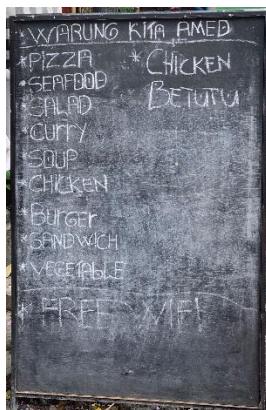 * WARUNG KITA AMED
* PIZZA
* SEAFOOD
* SALAD
* CURRY
* SOUP
* CHICKEN
* BURGEr
* SANDWICH
* VEGETABLE
* CHICKEN
BETUTU
* FREE WIFI